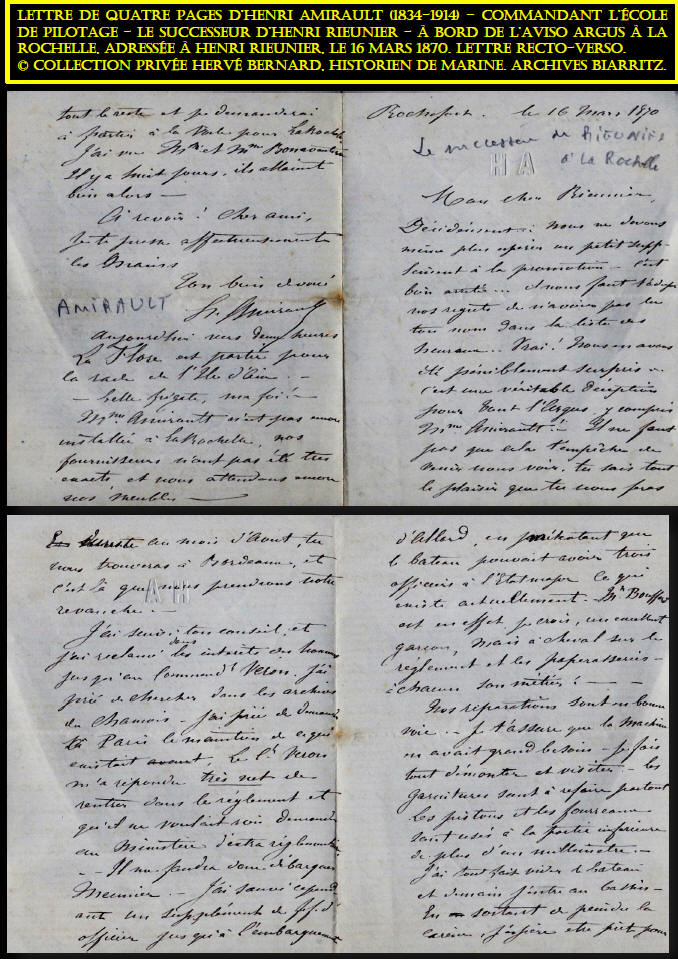 LETTRE DE QUATRE PAGES D'HENRI AMIRAULT (1834-1914) - COMMANDANT L'ÉCOLE
DE PILOTAGE - LE SUCCESSEUR D'HENRI RIEUNIER - À BORD DE L'AVISO ARGUS À LA
ROCHELLE, ADRESSÉE À HENRI RIEUNIER, LE 16 MARS 1870. LETTRE RECTO-VERSO.
© COLLECTION PRIVÉE HERVÉ BERNARD, HISTORIEN DE MARINE. ARCHIVES BIARRITZ.
Rochefort. le 16 Mars 1870
Le successeur de RIEUNIER
à La Rochelle
HA
Mon cher Rieunier,
Décidément nous ne devons
même plus espérer un petit supp-
lément à la promotion - c'est
bien arrêté... il nous faut
nos regrets de n'avoir pas lu
ton nom dans la liste des
heureux.. Vrai! Nous en avons
été péniblement surpris -
c'est une véritable déception
pour tout l'Argus y compris
Mme Amirault! Il ne faut
pas que cela t'empêche de
venir nous voir, tu sais tout
le plaisir que tu nous feras
au mois d'Aout, tu
nous trouveras à Bordeaux, et
c'est là que nous prendrons notre
revanche. -
J'ai suivi ton conseil, et
j'ai réclamé dans les intérêts des hommes
jusqu'au Command't Veron. j'ai
prié de chercher dans les archives
du Chamois - j'ai prié de demander
à Paris le maintien de ce qui
existait avant, le Ct Veron
m'a répondu très net de
rentrer dans le règlement et
qu'il ne voulait rien demander
au Ministère d'extra réglementaire
- Il me faudra donc débarquer
Meunier. - J'ai sauvé cepend
ant un supplément de
officier jusqu'à l'embarquement
d'Allard, en que
le bateau pouvait avoir trois
officiers à l'Etat major ce qui
existe actuellement - Mr
est en effet, je crois, un excellent
garçon, mais à cheval sur le
règlement et les paperasseries -
à chacun son métier! - -
Nos réparations sont en bonne
voie. - Je t'assure que la machine
en avait grand besoin - Je fais
tout démonter et visiter - les
garnitures sont à refaire partout
Les pistons et les fourreaux
sont usés à la partie inférieure
de plus d'un millimètre. -
J'ai tout fait vider le bateau
et demain j'entre au bassin -
En sortant de peindre la
carène, j'espère être prêt pour
tout le reste et je demanderai
à partir à la voile pour LaRochelle
J'ai vu Mr et Mme Bonaventure
Il y a huit jours, ils allaient
bien alors -
A revoir! cher ami,
je te presse affectueusement
les mains
Ton bien dévoué
H. Amirault
AMIRAULT
Aujourd'hui vers deux heures
La Flore est partie pour
la rade de l'Ile d'Aix. -
- belle frégate, ma foi! -
Mme Amirault n'est pas encore
installée à LaRochelle, nos
fournisseurs n'ont pas été très
exacts et nous attendons encore
nos meubles -
HA